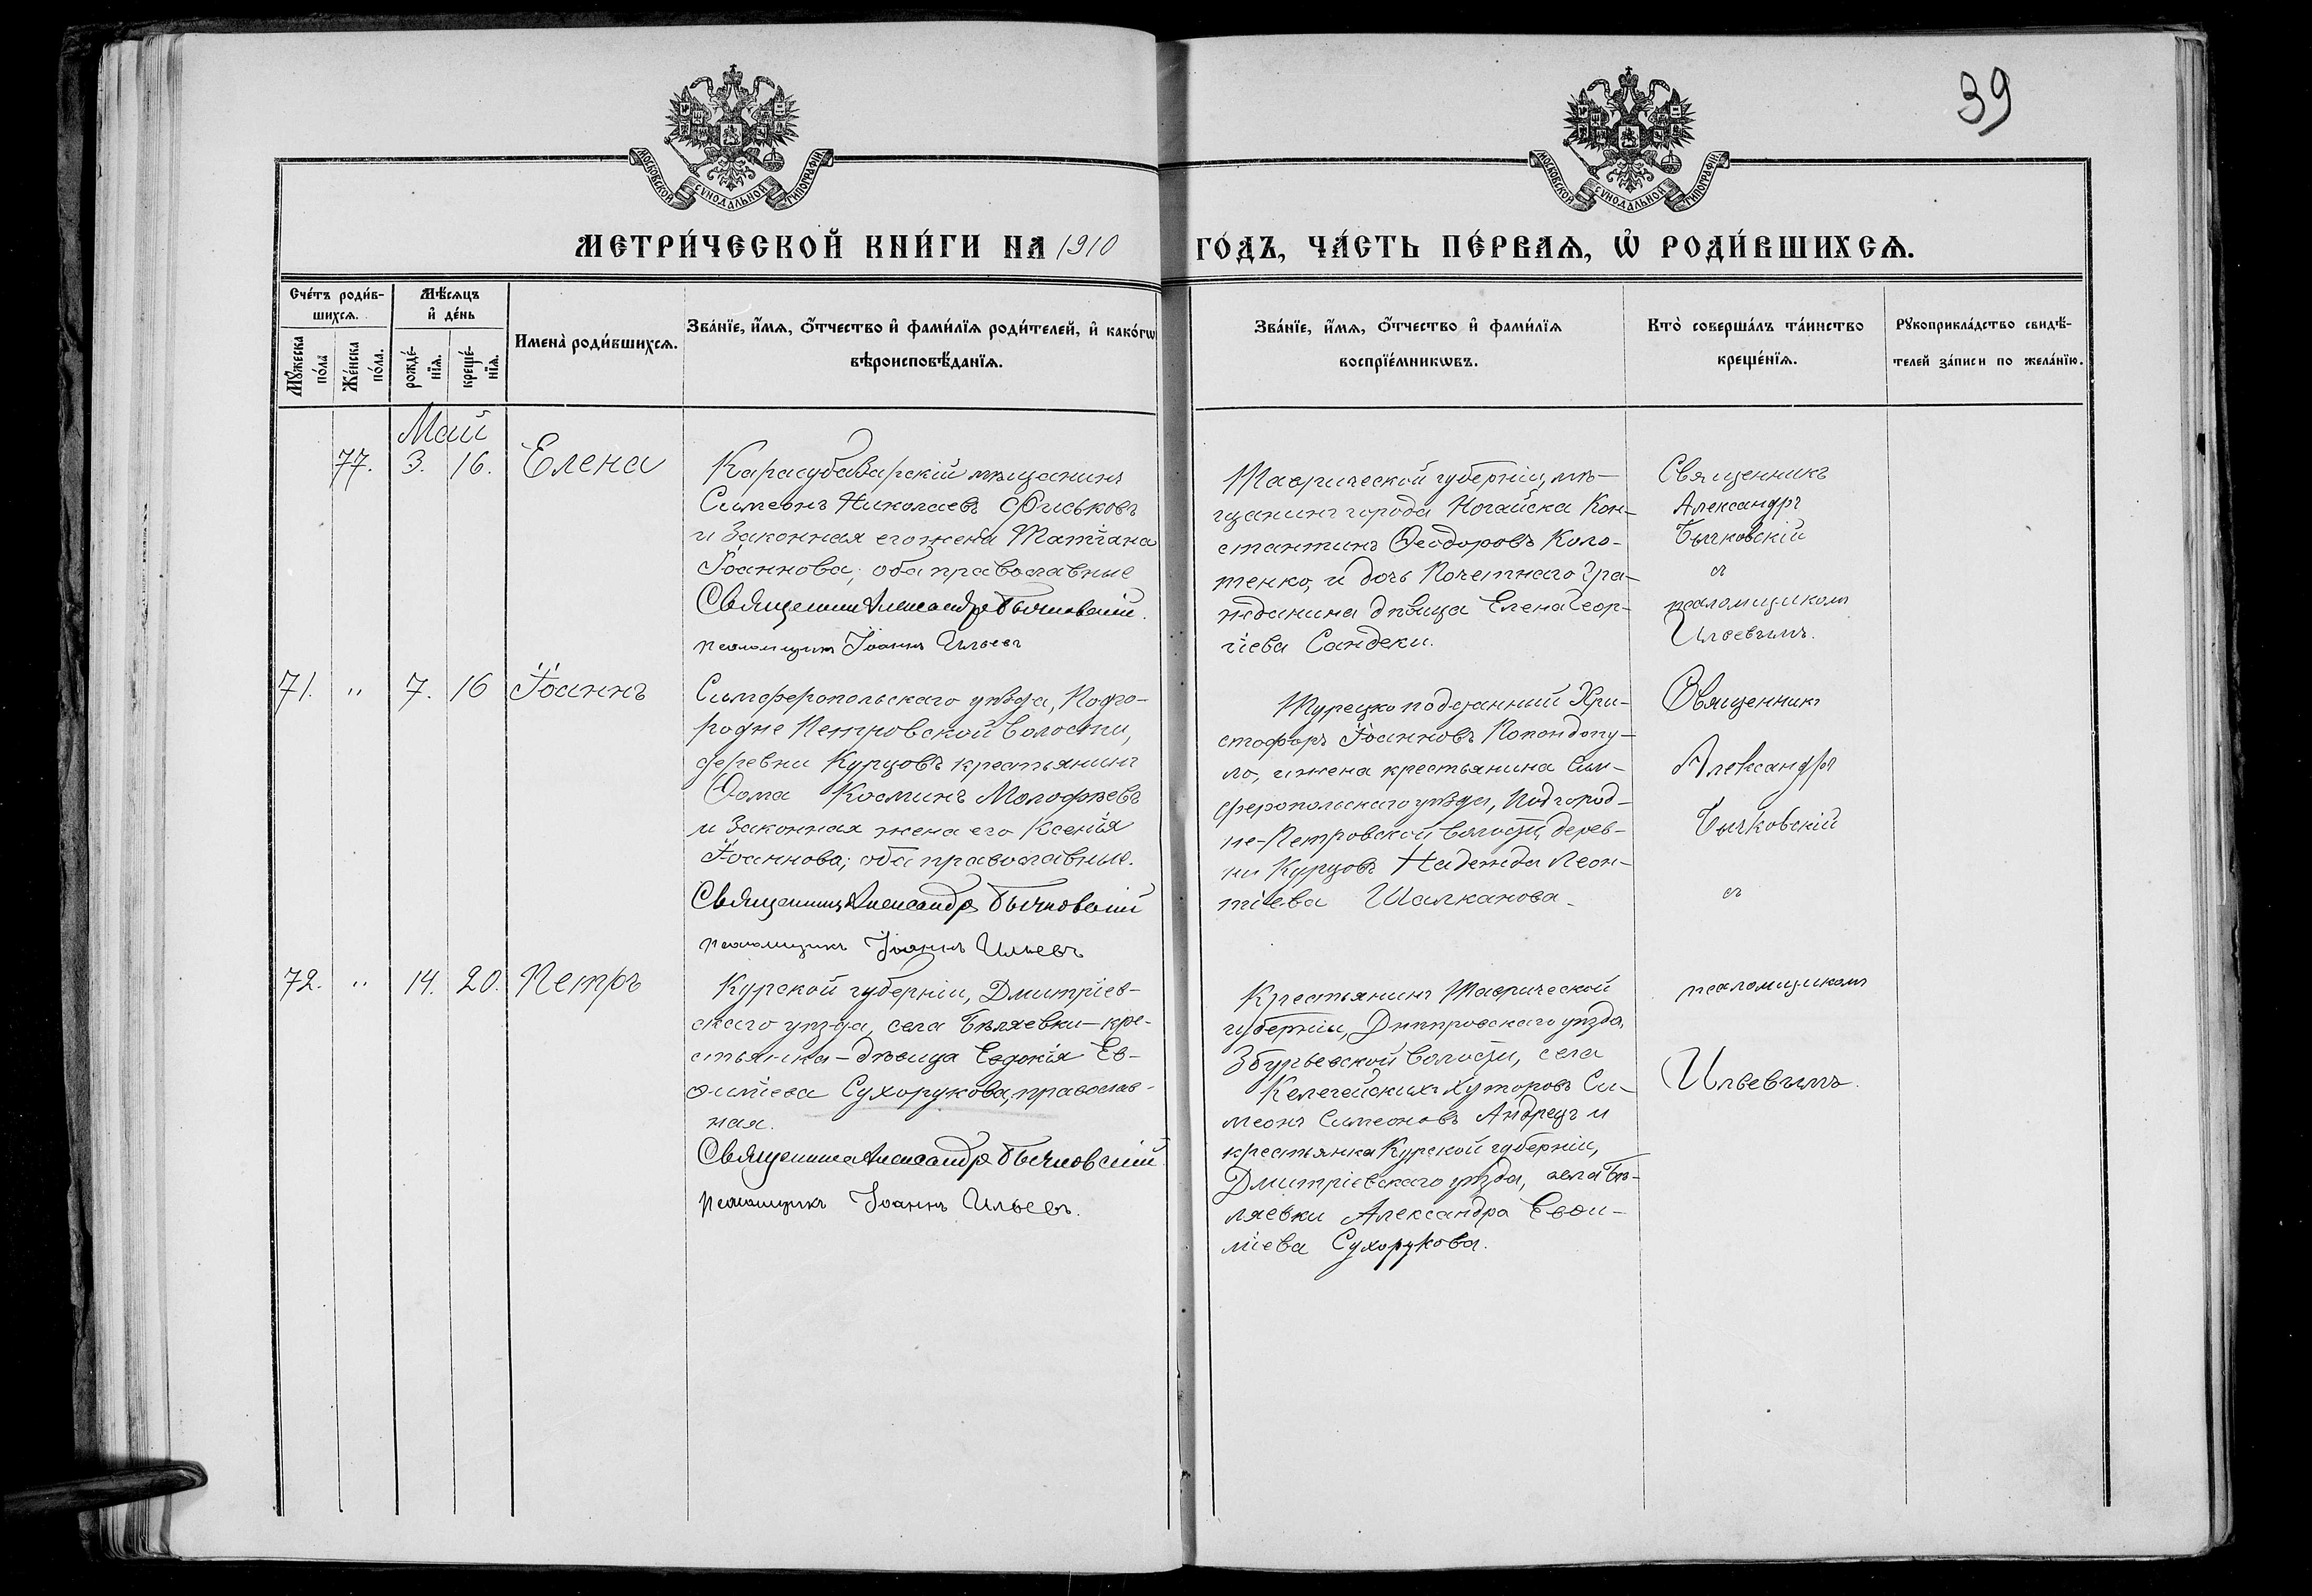 39
МОСКОВСКОЙ СѴНОДАЛЬНОЙ ТИПОГРАФІИ
МОСКОВСКОЙ СѴНОДАЛЬНОЙ ТИПОГРАФІИ
МЕТРИ́ЧЕСКОЙ КНИ́ГИ НА 1910 ГО́ДЪ, ЧА́СТЬ ПЕ́РВАѦ, Ѡ҆ РОДИ́ВШИХСѦ.
Сче́тъ роди́в-
шихсѧ.
Мѣ́сѧцъ
и҆ де́нь
Мꙋ́жеска
по́ла
Же́нска
по́ла.
рожде́-
нїѧ.
креще́-
нїѧ.
Имена̀ роди́вшихсѧ.
Зва́нїе, и҆́мѧ, ѻ҆́тчество и҆ фами́лїѧ роди́телей, и҆ како́гѡ
вѣроисповѣ́данїѧ.
Зва́нїе, и҆́мѧ, ѻ҆́тчество и҆ фами́лїѧ
воспрїе́мникѡвъ.
Кто̀ соверша́лъ та́инство
креще́нїѧ.
Рꙋкоприкла́дство свидѣ́-
телей за́писи по жела́нїю.
Май
77. 3. 16. Елена
Карасубазарскій мѣщанинъ
Симеонъ Николаевъ Фиськовъ
и законная его жена Татіана
Іоаннова; оба православные
Священникъ Александръ Бычковскій.
псаломщикъ Іоаннъ Ильевъ
Таврической губерніи, мѣ-
щанинъ города Ногайска Кон-
стантинъ Ѳеодоровъ Коло-
тенко, и дочь Почетнаго Гра-
жданина дѣвица Елена Геор-
гіева Сандеки.
Священникъ
Александръ
Бычковскій
съ
псаломщикомъ
Ильевымъ.
71. " 7. 16 Іоаннъ
Симферопольскаго уѣзда, Подго-
родне Петровской волости,
деревни Курцовъ крестьянинъ
Ѳома Косминъ Молофѣевъ
и законная жена его Ксенія
Іоаннова; оба православные.
Священникъ Александръ Бычковскій
псаломщикъ Іоаннъ Ильевъ
Турецко подданный Хри-
стофоръ Іоанновъ Попондопу-
ло, и жена крестьянина Сим-
феропольскаго уѣзда, Подгород-
не-Петровской волости, дерев-
ни Курцовъ Надежда Леон-
тіева Шалканова.
Священникъ
Александръ
Бычковскій
съ
псаломщикомъ
Ильевымъ.
72. " 14. 20. Петръ
Курской губерніи, Дмитріев-
скаго уѣзда, села Бѣляевки-кре-
стьянка-дѣвица Евдокія Ев-
ѳиміева Сухорукова, православ-
ная.
Священникъ Александръ Бычковскій
псаломщикъ Іоаннъ Ильевъ.
Крестьянинъ Таврической
губерніи, Днѣпровскаго уѣзда,
Збурьевской волости, села
Келегейскихъ хуторовъ Си-
меонъ Симеоновъ Андрецъ и
крестьянка Курской губерніи,
Дмитріевскаго уѣзда, села Бѣ-
ляевки Александра Евѳи-
міева Сухорукова.